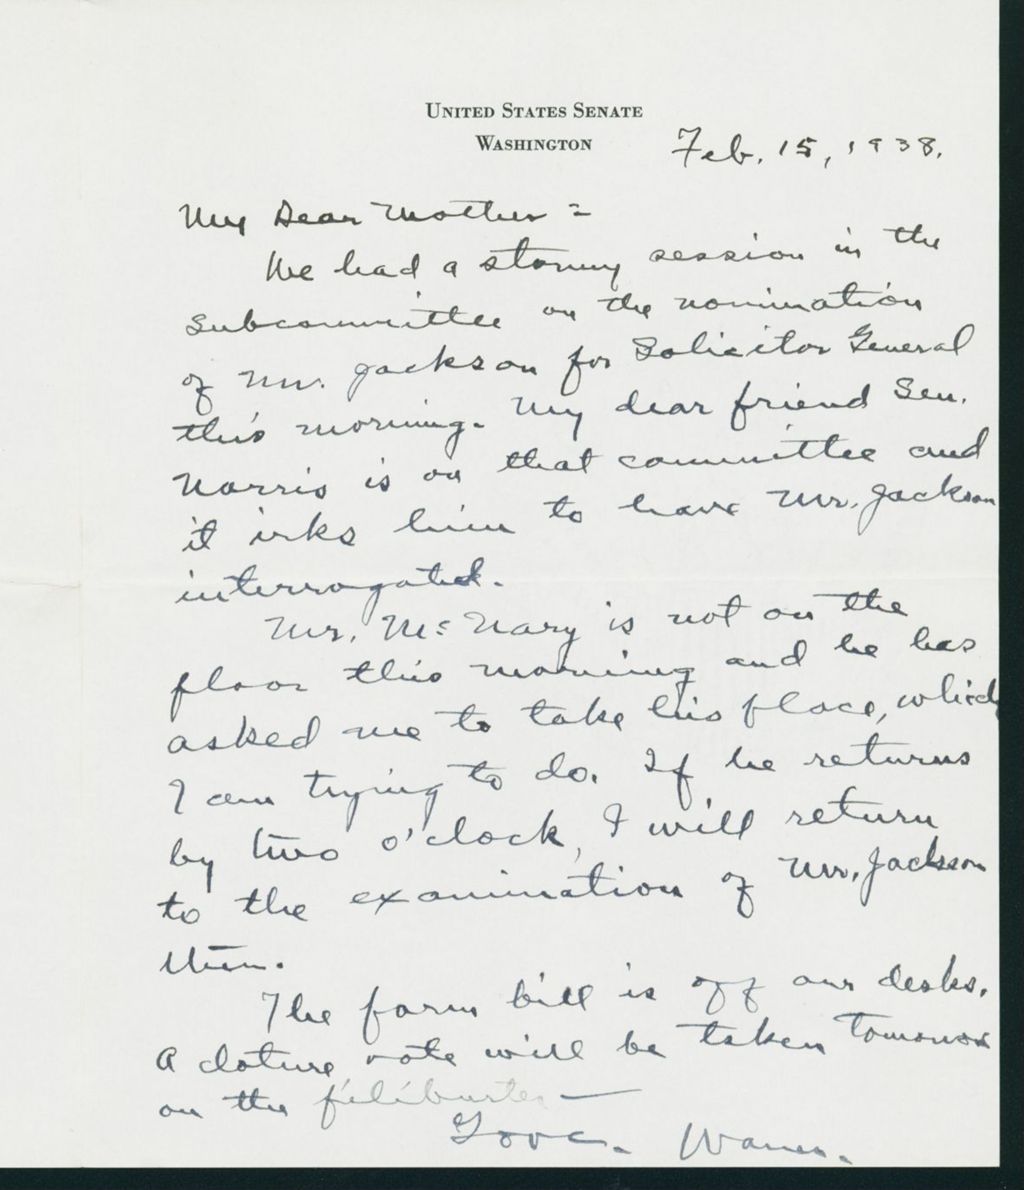 UNITED STATES SENATE
WASHINGTON
Feb. 15, 1938.
My Dear Mother =
We had a stormy session in the
subcommittee on the nomination
of Mr. Jackson for Solicitor General
this morning. My dear friend Sen.
Norris is on that committee and
it irks him to have Mr. Jackson
interrogated.
Mr. McNary is not on the
floor this morning and he has
asked me to take his place, which
I am trying to do. If he returns
by two o'clock, I will return
to the examination of Mr. Jackson
then.
The farm bill is off our desks.
A cloture vote will be taken tomorrow
on the filibuster —
Love. Warren.